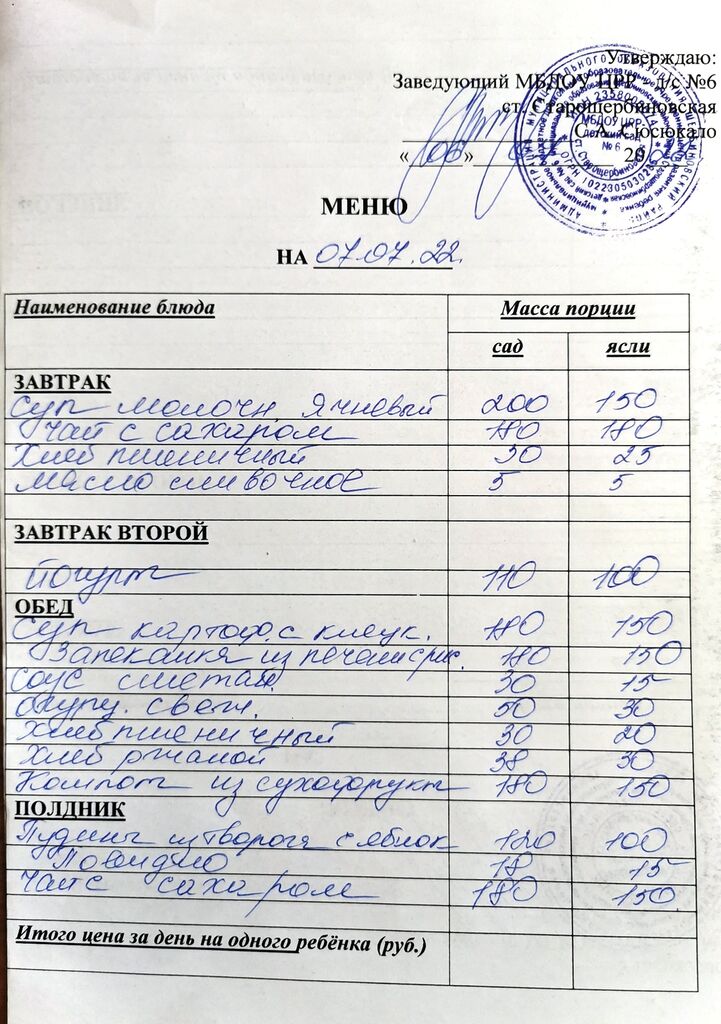 Утверждаю:
Заведующий МБДОУ ЦРР - д/с №6
ст. Старощербиновская
С.А. Сюсюкало
«06» 20
МЕНЮ
НА 07.07.22.
Наименование блюда Масса порции
сад ясли
ЗАВТРАК
Суп молочн. ячневый 200 150
Чай с сахаром 180 180
Хлеб пшеничный 30 25
Масло сливочное 5 5
ЗАВТРАК ВТОРОЙ
Йогурт 110 100
ОБЕД
Суп картоф. с клецк. 180 150
Запеканка из печени с рис. 180 150
Соус сметан. 30 15
Огурц. свеж. 50 30
Хлеб пшеничный 30 20
Хлеб ржаной 38 30
Компот из сухофрукт 180 150
ПОЛДНИК
Пудинг из творога с яблок 120 100
Повидло 18 15
Чай с сахаром 180 150
Итого цена за день на одного ребёнка (руб.)